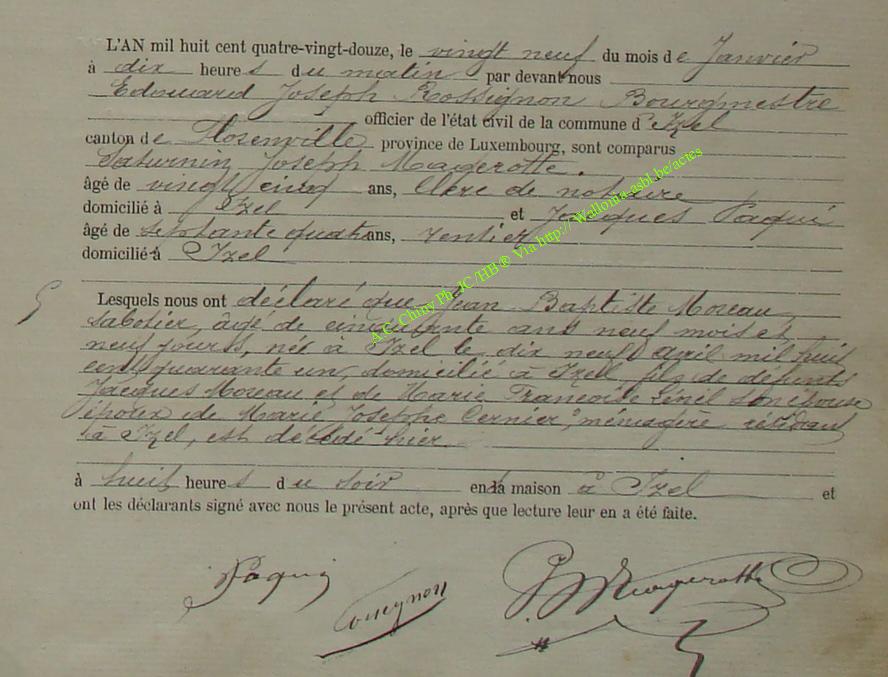 L'AN mil huit cent quatre-vingt-douze, le vingt neuf du mois de Janvier
à dix heures du matin par devant nous
Edouard Joseph Rossignon Bourgmestre
officier de l'état civil de la commune d'Izel
canton de Florenville province de Luxembourg, sont comparus
Saturnin Joseph Magerotte.
âgé de vingt cinq ans, Clerc de notaire
domicilié à Izel et Jacques Paqui
âgé de septante quatre ans, rentier
domicilié à Izel
Lesquels nous ont déclaré que Jean Baptiste Moreau
sabotier, âgé de cinquante ans neuf mois et
neuf jours, né à Izel le dix neuf avril mil huit
cent quarante un, domicilié à Izel, fils de défunts
Jacques Moreau et de Marie Françoise son épouse
époux de Marie Josephe Cernier, ménagère résidant
à Izel, est décédé hier
à huit heures du soir en la maison à Izel et
ont les déclarants signé avec nous le présent acte, après que lecture leur en a été faite.
JPaqui
Rossignon
Magerotte
A.G. Chiny Ph.JC /HB® Via http:// Wallonia-asbl.be/actes